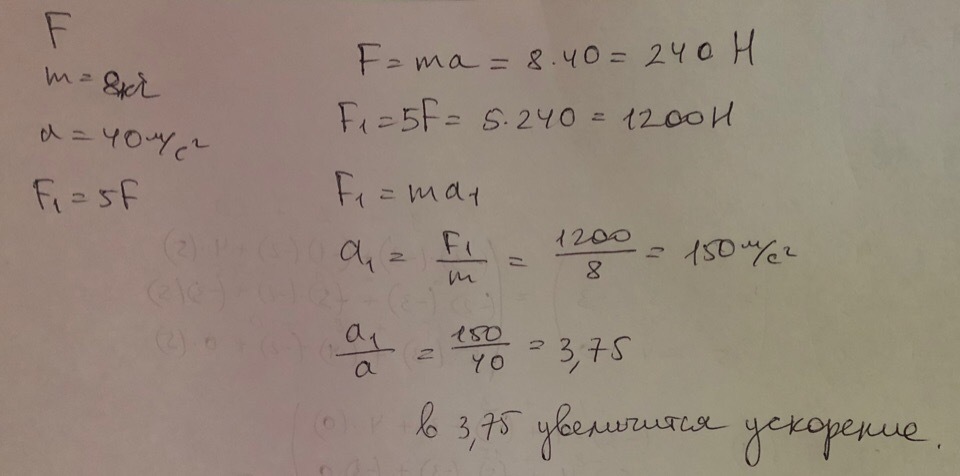 F
m = 8кг
a = 40 м/с²
F₁ = 5F
F = ma = 8·40 = 240 Н
F₁ = 5F = 5·240 = 1200 Н
F₁ = ma₁
a₁ = F₁/m = 1200/8 = 150 м/с²
a₁/a = 150/40 = 3,75
в 3,75 увеличится ускорение.